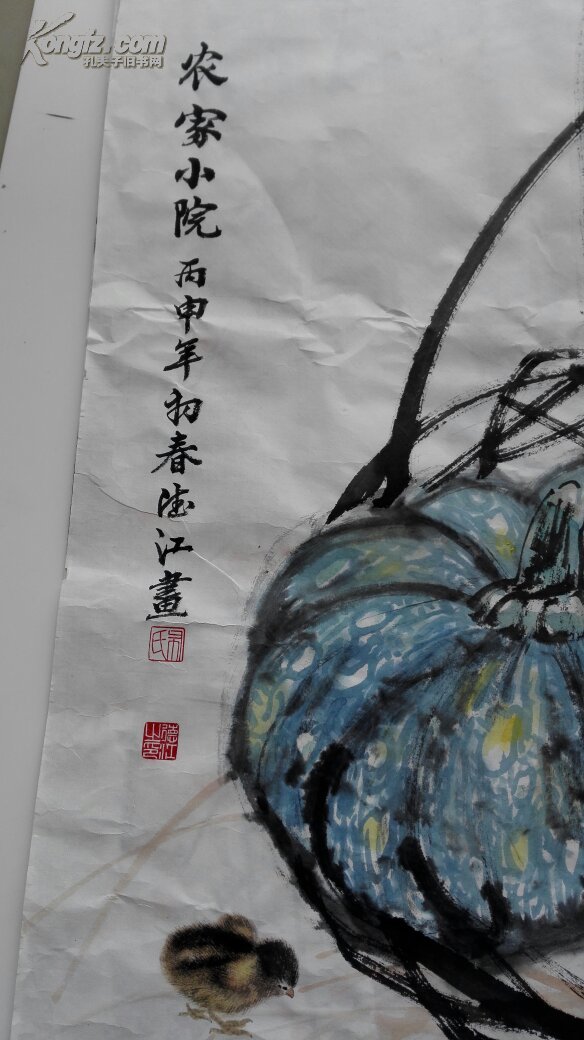 Kongfz.com
孔夫子旧书网
农家小院
丙申年初春德江畫
吴氏
德江之印